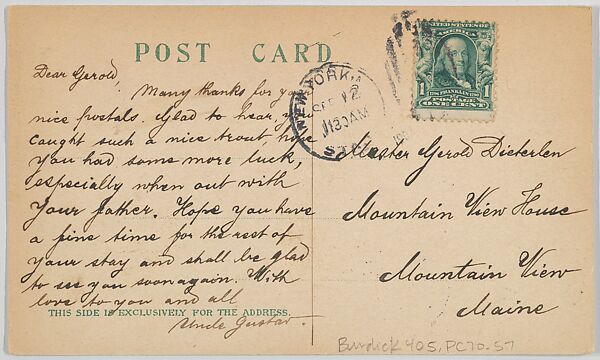 POST CARD
Dear Gerold,
Many thanks for your
nice postals. Glad to hear, you
caught such a nice trout, hope
you had some more luck,
especially when out with
your father. Hope you have
a fine time for the rest of
your stay and shall be glad
to see you soon again. With
love to you and all
THIS SIDE IS EXCLUSIVELY FOR THE ADDRESS.
Uncle Gustav.
NEW YORK, N
SEP 12
1130AM
STA.
UNITED STATES OF
AMERICA
1 FRANKLIN 1
POSTAGE
ONE CENT
Master Gerold Dieterlen
Mountain View House
Mountain View
Maine
Burdick 405, PC70.57